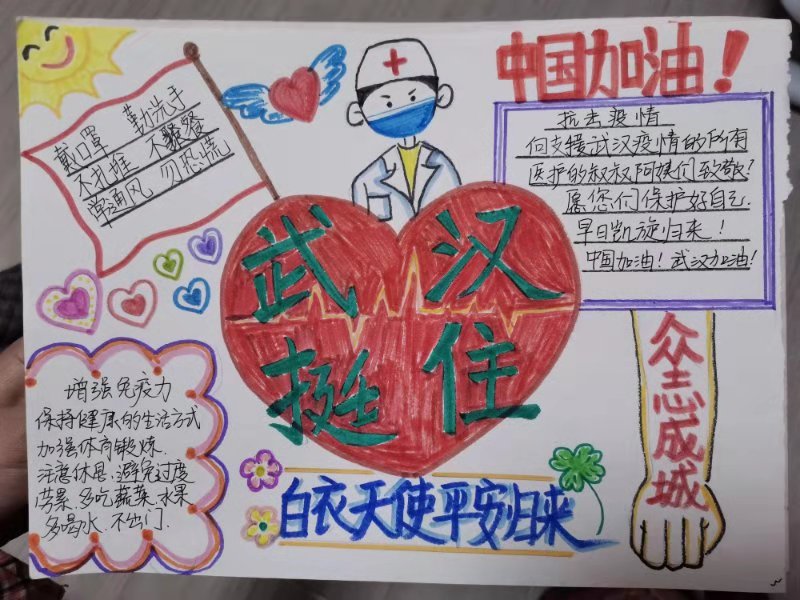 中国加油!
戴口罩 勤洗手
不扎堆 不聚餐
常通风 勿恐慌
抗击疫情
向支援武汉疫情的所有
医护的叔叔阿姨们致敬!
愿您们保护好自己.
早日凯旋归来!
中国加油!武汉加油!
武汉
挺住
众志成城
增强免疫力
保持健康的生活方式
加强体育锻炼.
注意休息.避免过度
劳累.多吃蔬菜.水果
多喝水.不出门.
白衣天使平安归来